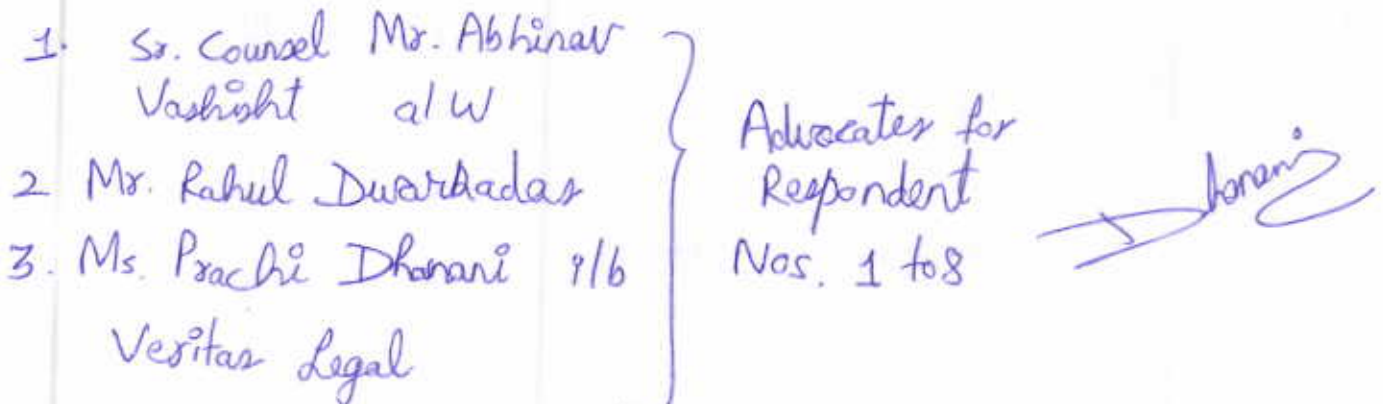 1. Sr. Counsel Mr. Abhinav
Vashisht a/w
2 Mr. Rahul Dwarkadas
3. Ms. Prachi Dhanani i/b
Veritas Legal
Advocates for
Respondent
Nos. 1 to 8
Dhanani